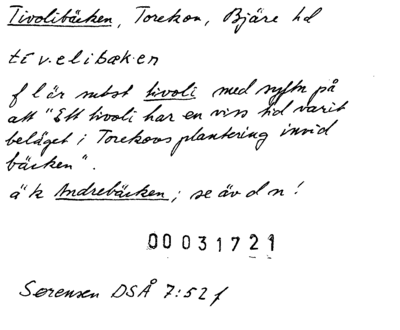 Tivolibäcken, Torekov, Bjäre hd
tɛ́v.elibæk.en
f l är subst tivoli med syftn på
att "Ett tivoli har en viss tid varit
beläget i Torekovs plantering invid
bäcken".
ä k Andrebäcken; se äv d n!
00031721
Sørensen DSÅ 7:52 f